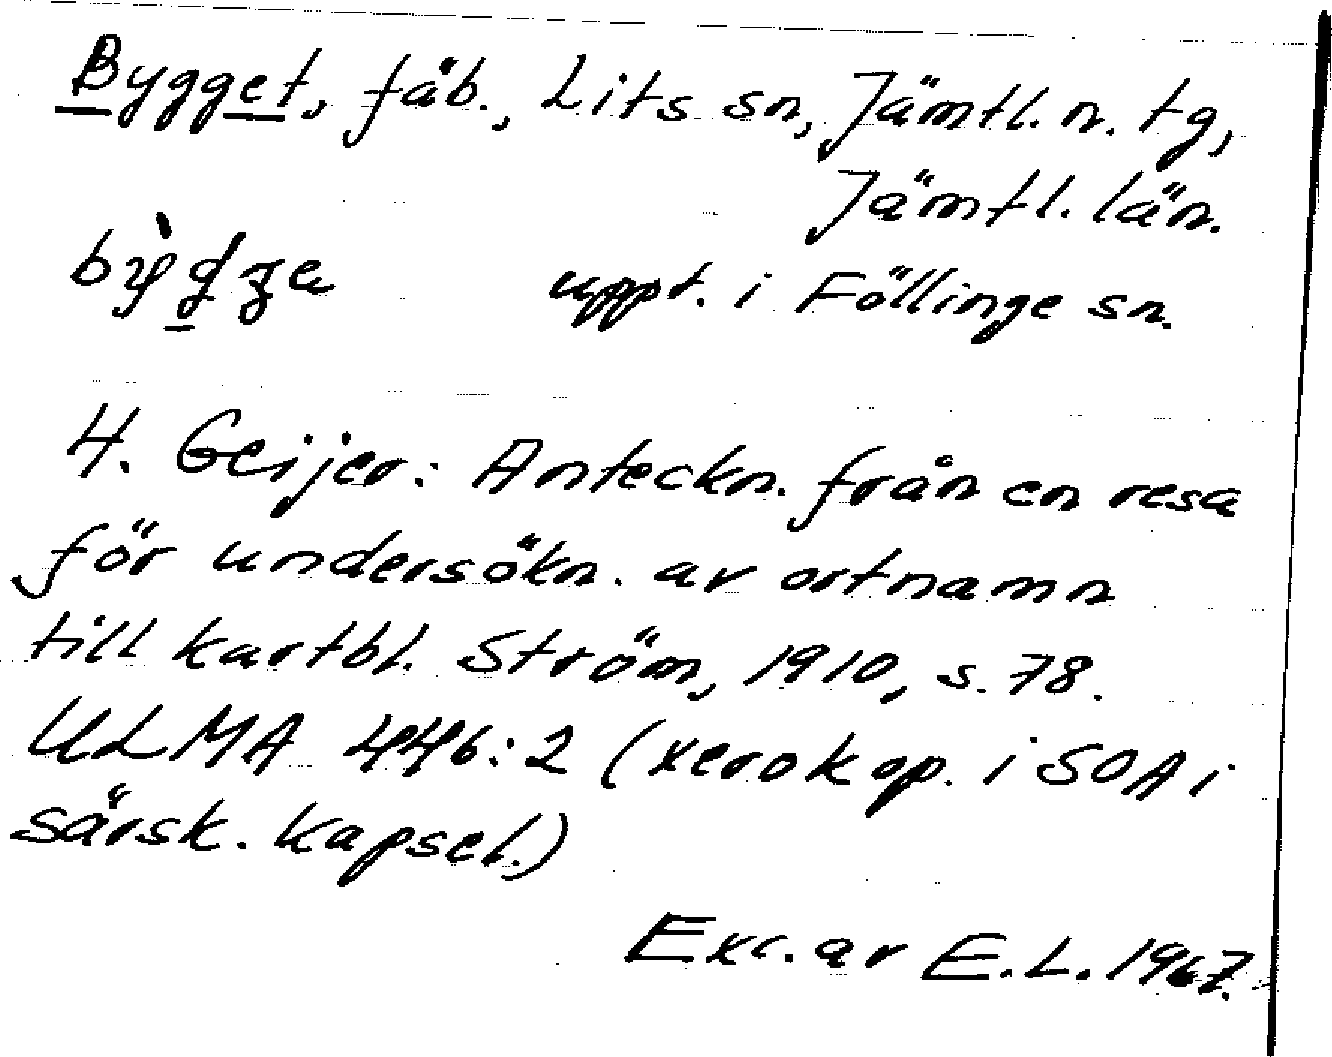 Bygget, fäb., Lits sn, Jämtl. n. tg,
Jämtl. län.
uppt. i Föllinge sn.
H. Geijer: Anteckn. från en resa
för undersökn. av ortnamn
till kartbl. Ström, 1910, s. 78.
ULMA 446:2 (xerokop. i SOA i
särsk. kapsel.)
Exc. av E.L. 1967.